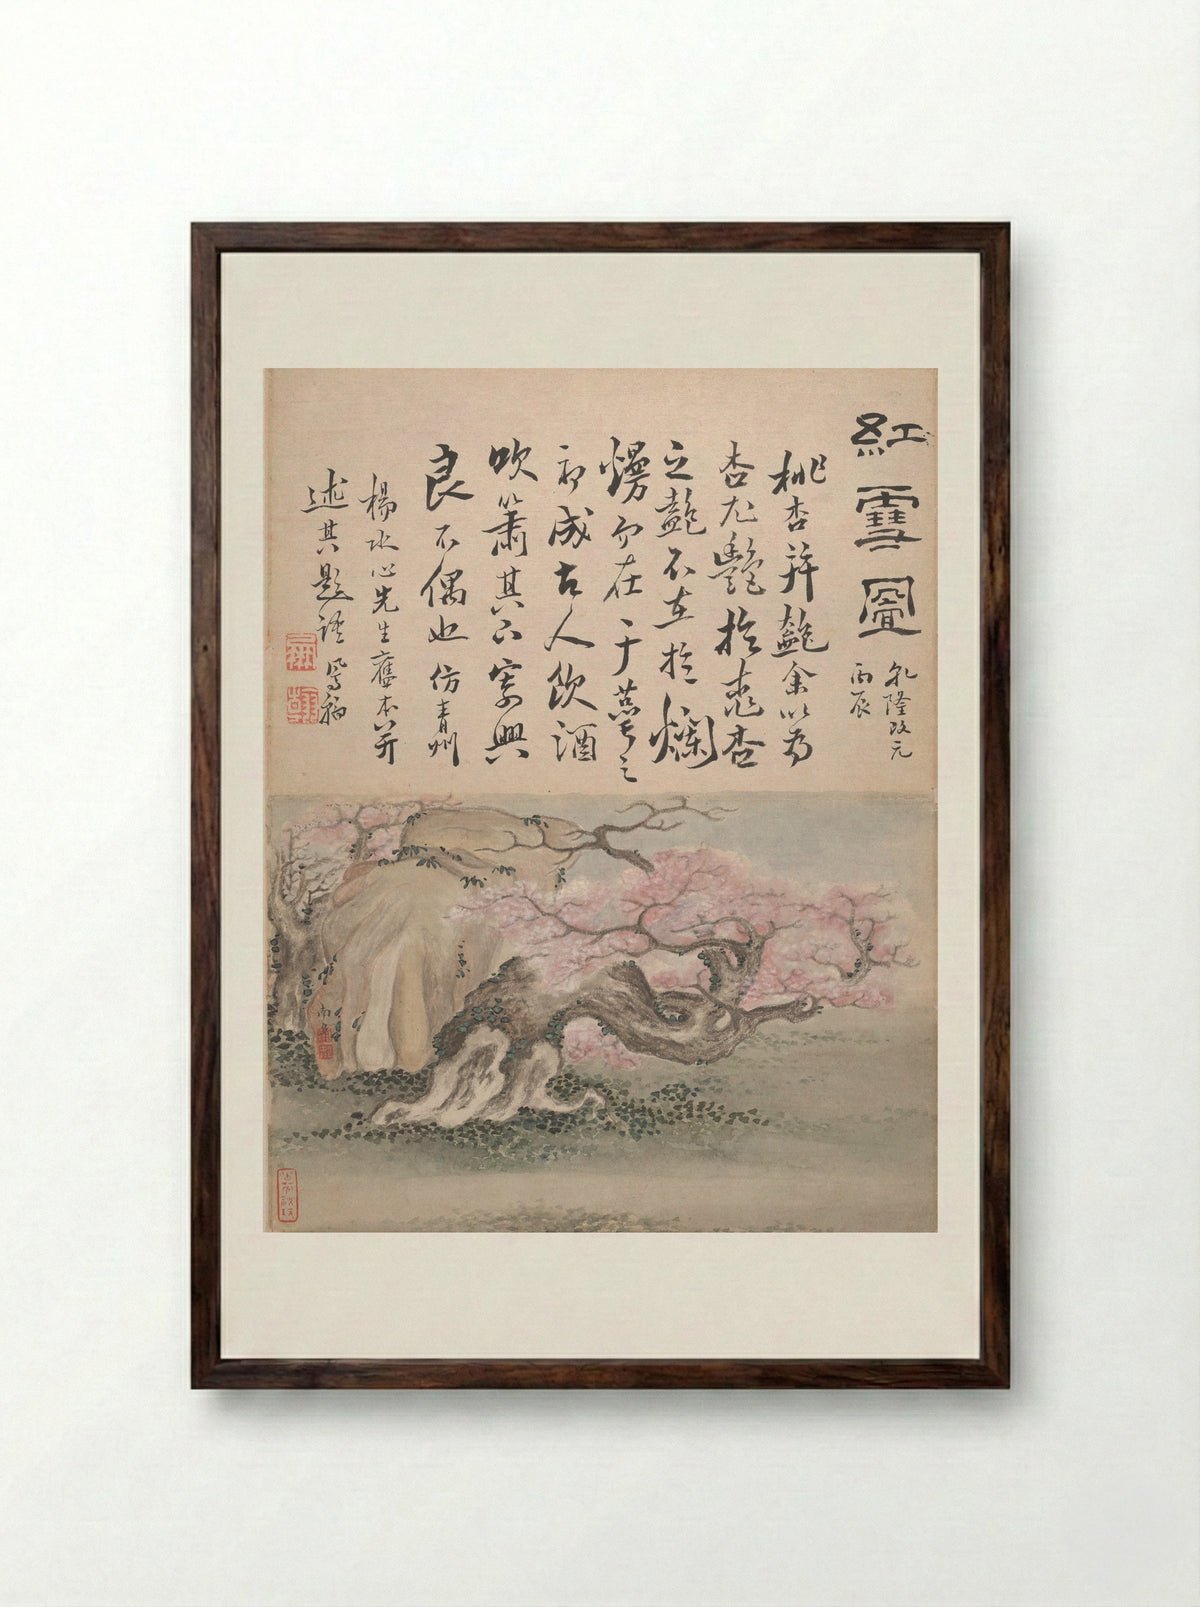 紅雪圖
乾隆改元
丙辰
桃杏並艷余以為
杏尤艷於桃杏
之艷不在於爛
熳而在于蕚之
初成古人飲酒
吹簫其下寄興
良不偶也仿青州
楊水心先生舊本并
述其題語